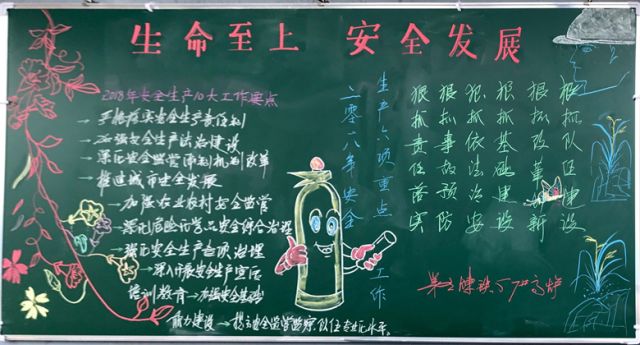 生命至上 安全发展
2018年安全生产10大工作要点
→ 严格落实安全生产责任制
→ 加强安全生产法治建设
→ 深化安全监管体制机制改革
→ 推进城市安全发展
→ 加强农业农村安全监管
→ 深化危险化学品安全综合治理
→ 强化安全生产专项治理
→ 深入开展安全生产宣传
培训教育 → 加强安全基础
能力建设 → 提高安全监管监察队伍专业化水平。
二零一八年安全
生产六项重点工作
狠抓责任落实
狠抓事故预防
狠抓依法治安
狠抓基础建设
狠抓改革创新
狠抓队伍建设
7#高炉